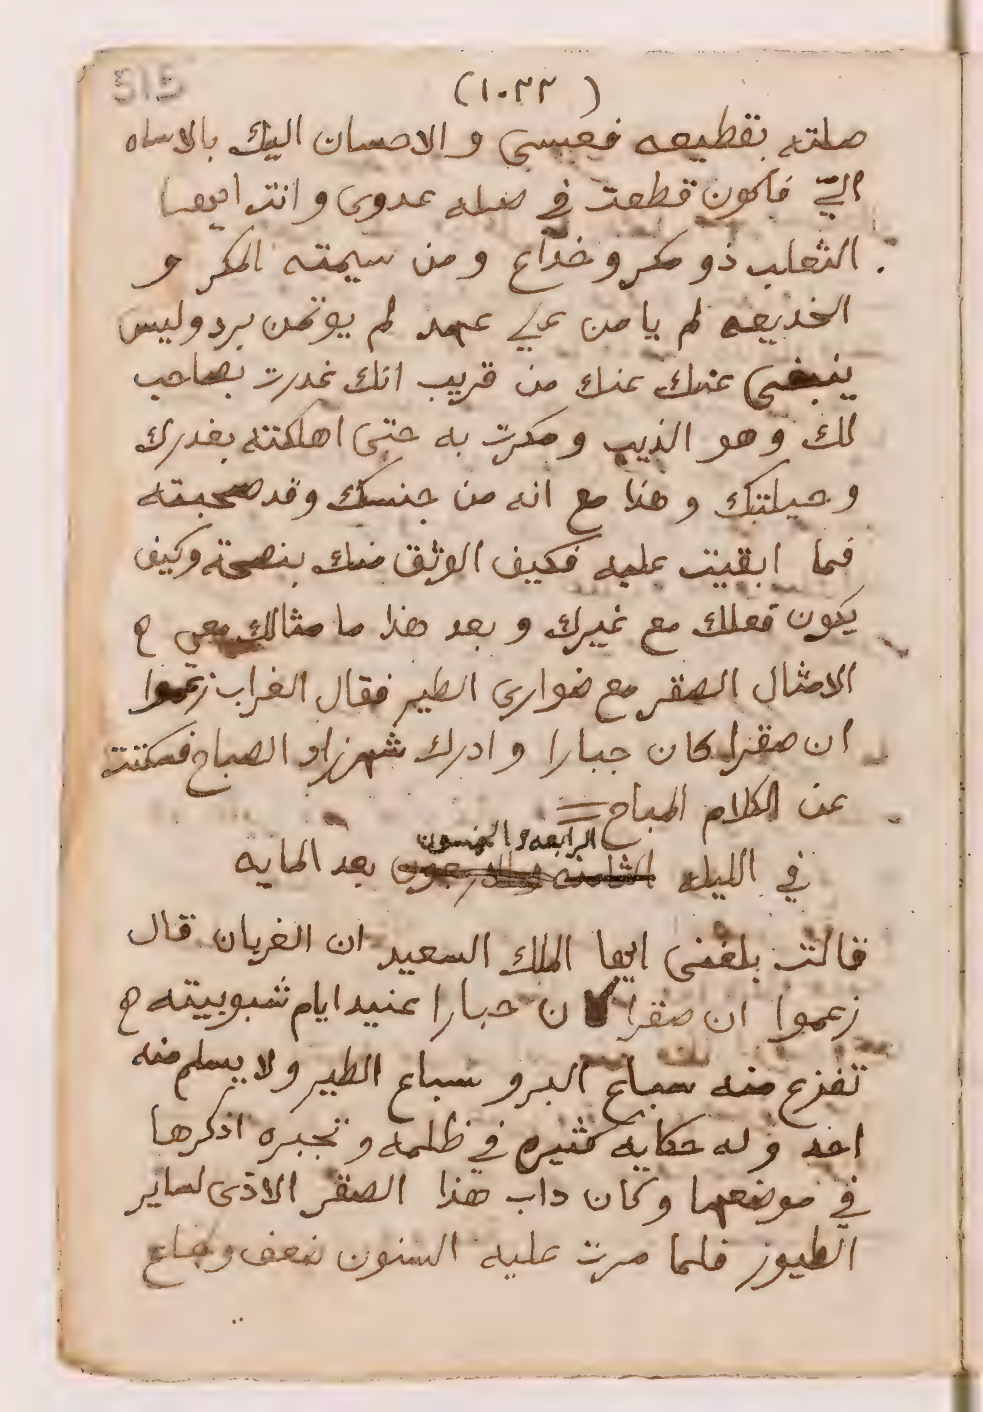 515
(١٠٣٣)
صلته بقطيعه فعبسي والاحسان اليك بالاساه
اليّ فاكون قطعت في صله عدوى وانت ايها
الثعلب ذو مكر وخداع ومن سيمته المكر و
الخديعه لم يامن علي عهد لم يوتمن برد وليس
عنك من قريب انك غدرت بصاحب
لك وهو الذيب ومكرت به حتى اهلكته بغدرك
وحيلتك وهذا مع انه من جنسك وقد صحبته
فما ابقيت عليه فكيف الوثق منك بنصحه وكيف
يكون فعلك مع غيرك و بعد هذا ما مثالك معي م
الامثال الصقر مع ضوارى الطير فقال الغراب زعموا
ان صقرا كان جبارا وادرك شهرزاد الصباح فسكتت
عن الكلام المباح =
الرابعه والخمسون
في الليله الثامنه والاربعون بعد المايه
قالت بلغنى ايها الملك السعيد ان الغربان قال
زعموا ان صقرا كان جبارا عنيد ايام شبوبيته م
تفزع منه سباع البر و سباع الطير ولا يسلم منه
احد وله حكايه كثيره في ظلمه وتجبره اذكرها
في موضعها وكان داب هذا الصقر الاذى لساير
الطيور فلما مرت عليه السنون ضعف وجاع